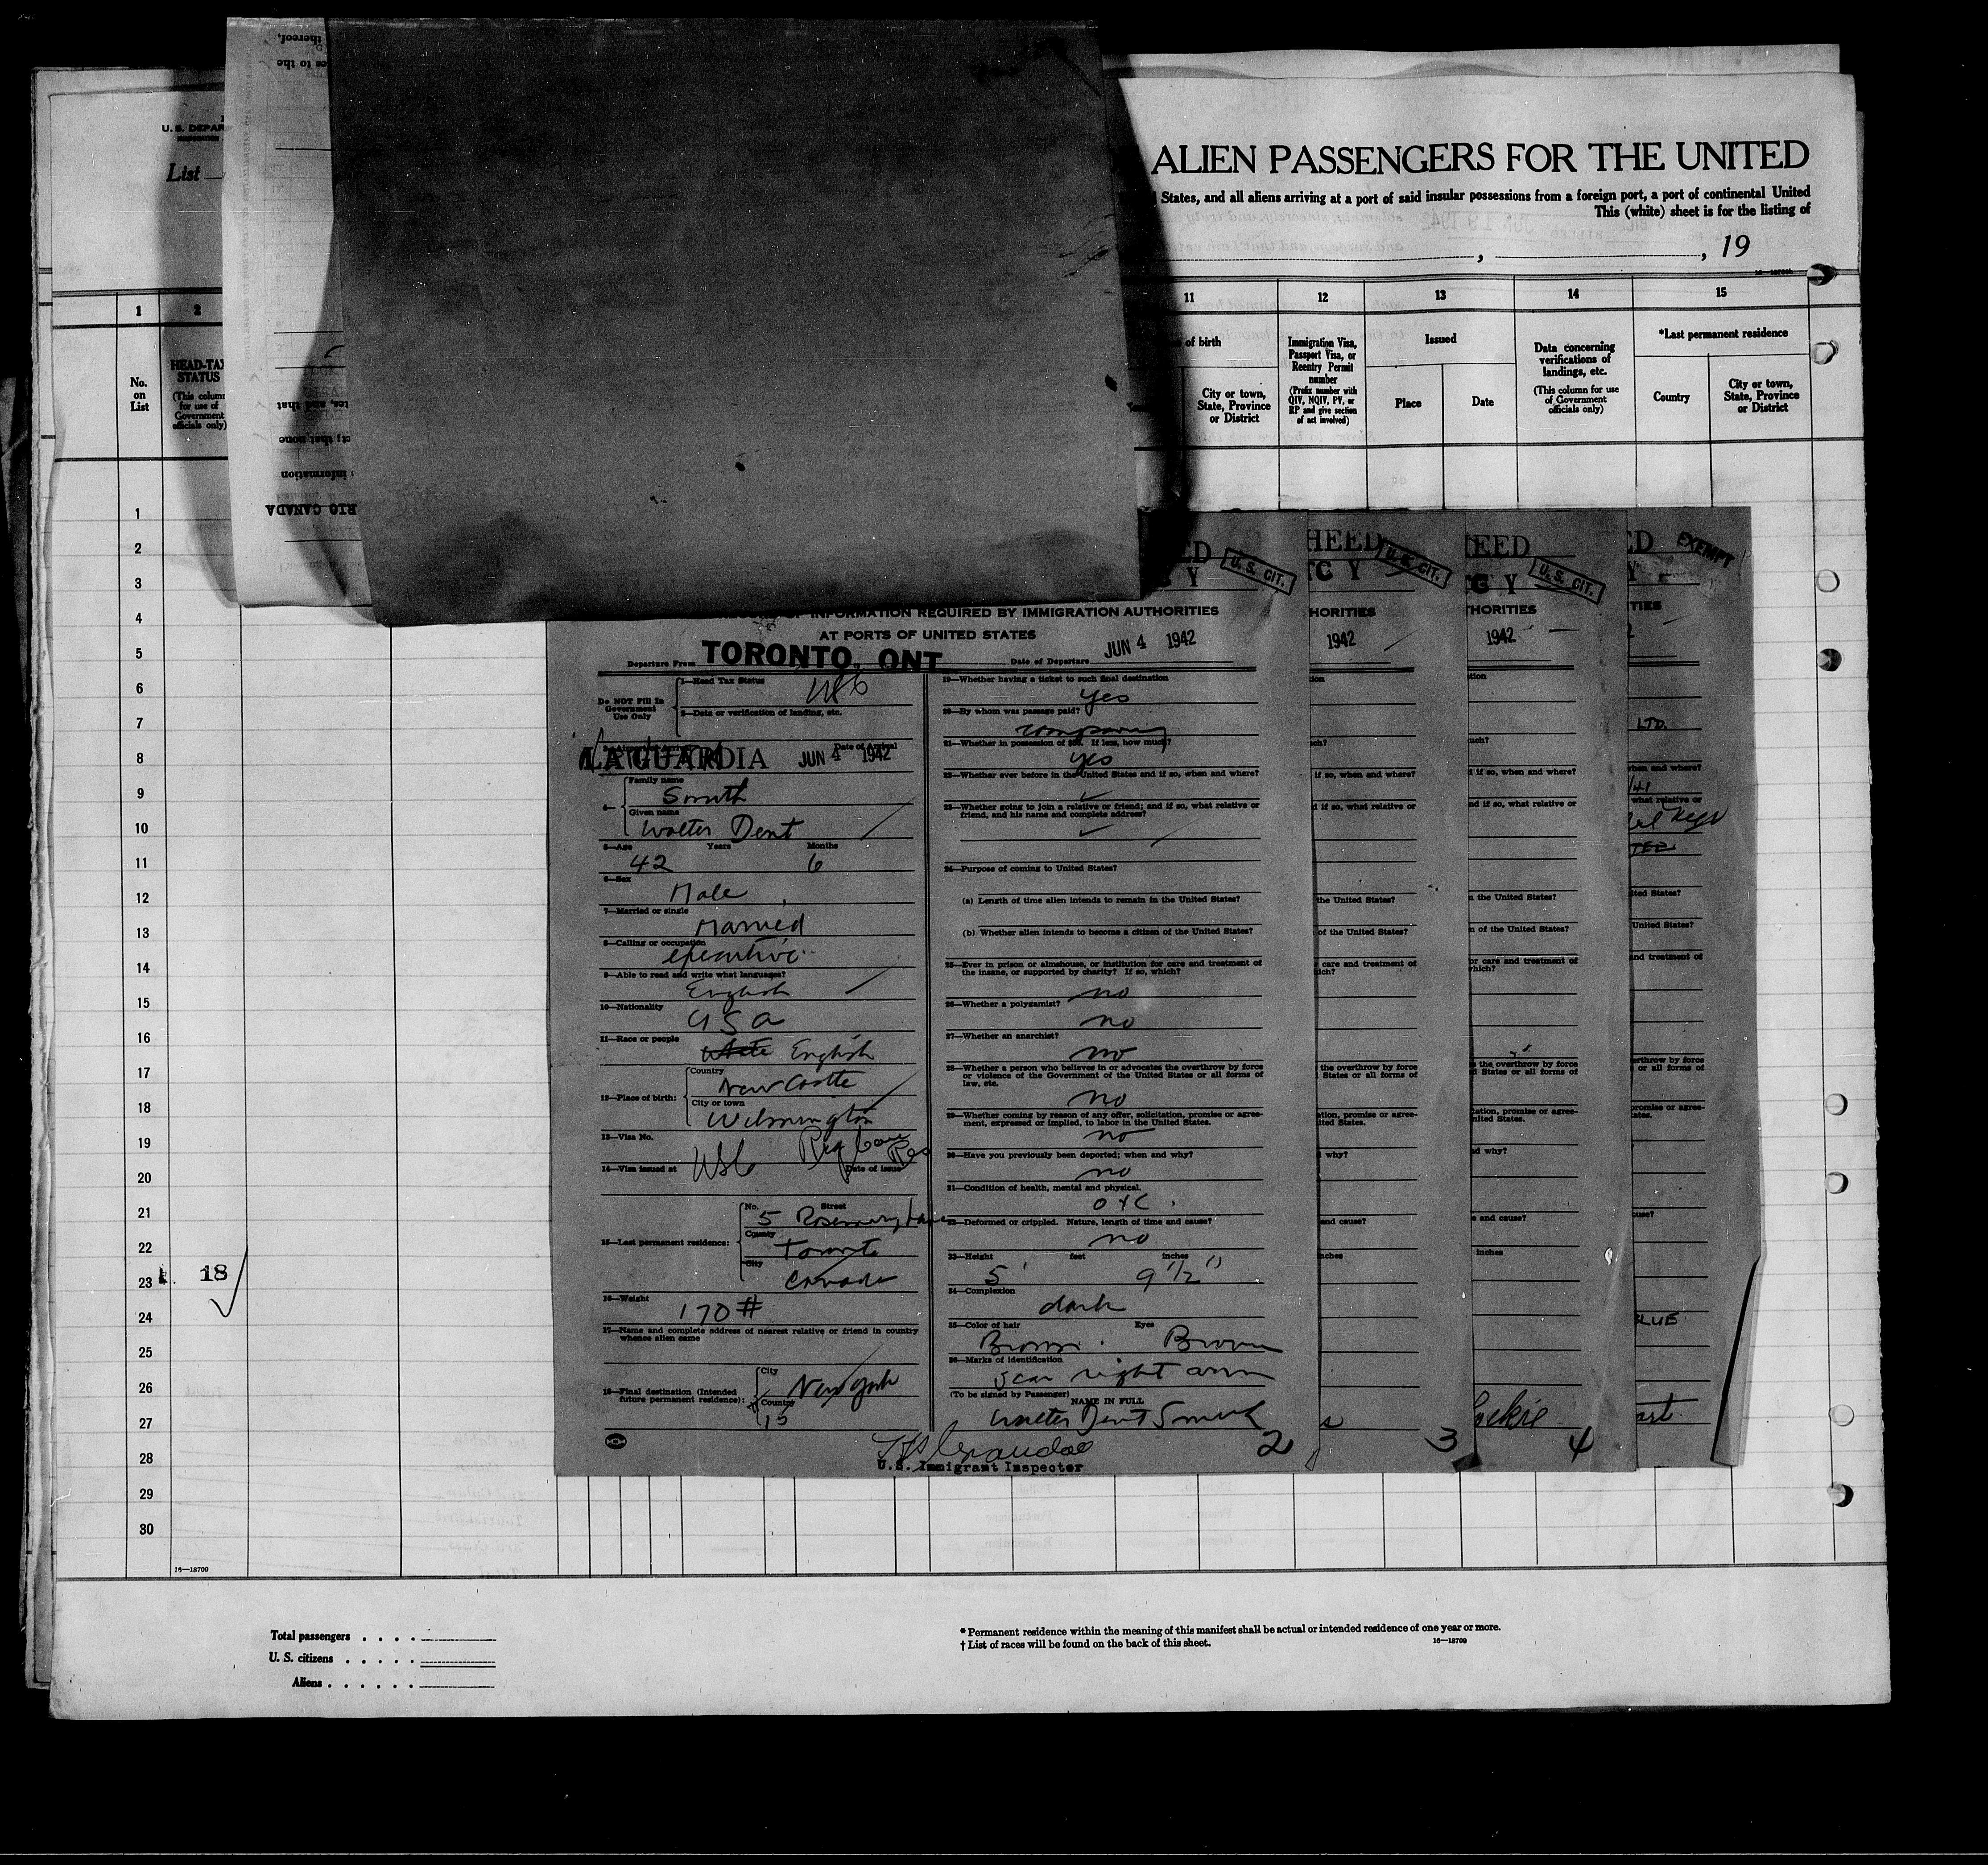 U. S. DEPAR
List
ALIEN PASSENGERS FOR THE UNITED
States, and all aliens arriving at a port of said insular possessions from a foreign port, a port of continental United
This (white) sheet is for the listing of
, , 19
1 2 11 12 13 14 15
No. on List
HEAD-TAX STATUS
(This column for use of Government officials only)
of birth
City or town, State, Province or District
Immigration Visa, Passport Visa, or Reentry Permit number
(Prefix number with QIV, NQIV, PV, or RP and give section of act involved)
Issued
Place
Date
Data concerning verifications of landings, etc.
(This column for use of Government officials only)
*Last permanent residence
Country
City or town, State, Province or District
1
2
3
4
5
6
7
8
9
10
11
12
13
14
15
16
17
18
19
20
21
22
23
24
25
26
27
28
29
30
18
16—18709
U. S. CIT.
OF INFORMATION REQUIRED BY IMMIGRATION AUTHORITIES
AT PORTS OF UNITED STATES
Departure From TORONTO, ONT.
Date of Departure JUN 4 1942
Do NOT Fill In Government Use Only
1—Head Tax Status USC
2—Data or verification of landing, etc.
Date of Arrival
LA GUARDIA JUN 4 1942
4— Family name
Smith
Given name
Walter Dent
5—Age Years Months
42 6
6—Sex
Male
7—Married or single
Married
8—Calling or occupation
executive
9—Able to read and write what languages?
English
10—Nationality
USA
11—Race or people
white English
12—Place of birth: Country
New Castle
City or town
Wilmington
13—Visa No.
USC
14—Visa issued at
Date of issue
15—Last permanent residence: No. Street
5 Rosemary Lane
County
Toronto
City
Canada
16—Weight
170 #
17—Name and complete address of nearest relative or friend in country whence alien came
18—Final destination (Intended future permanent residence): City
New York
Country
15
19—Whether having a ticket to such final destination
yes
20—By whom was passage paid?
company
21—Whether in possession of $50. If less, how much?
yes
22—Whether ever before in the United States and if so, when and where?
23—Whether going to join a relative or friend; and if so, what relative or friend, and his name and complete address?
24—Purpose of coming to United States?
(a) Length of time alien intends to remain in the United States?
(b) Whether alien intends to become a citizen of the United States?
25—Ever in prison or almshouse, or institution for care and treatment of the insane, or supported by charity? If so, which?
no
26—Whether a polygamist?
no
27—Whether an anarchist?
no
28—Whether a person who believes in or advocates the overthrow by force or violence of the Government of the United States or all forms of law, etc.
no
29—Whether coming by reason of any offer, solicitation, promise or agreement, expressed or implied, to labor in the United States.
no
30—Have you previously been deported; when and why?
no
31—Condition of health, mental and physical.
32—Deformed or crippled. Nature, length of time and cause?
no
33—Height feet inches
5' 9 1/2"
34—Complexion
dark
35—Color of hair Eyes
Brown Brown
36—Marks of identification
scar right arm
(To be signed by Passenger)
NAME IN FULL
Walter Dent Smith
2
U.S. Immigrant Inspector
U. S. CIT.
HORITIES
1942
3
U. S. CIT.
THORITIES
1942
4
EXEMPT
LTD.
Total passengers . . . .
U. S. citizens . . . . .
Aliens . . . . . .
* Permanent residence within the meaning of this manifest shall be actual or intended residence of one year or more.
† List of races will be found on the back of this sheet.
16—18709